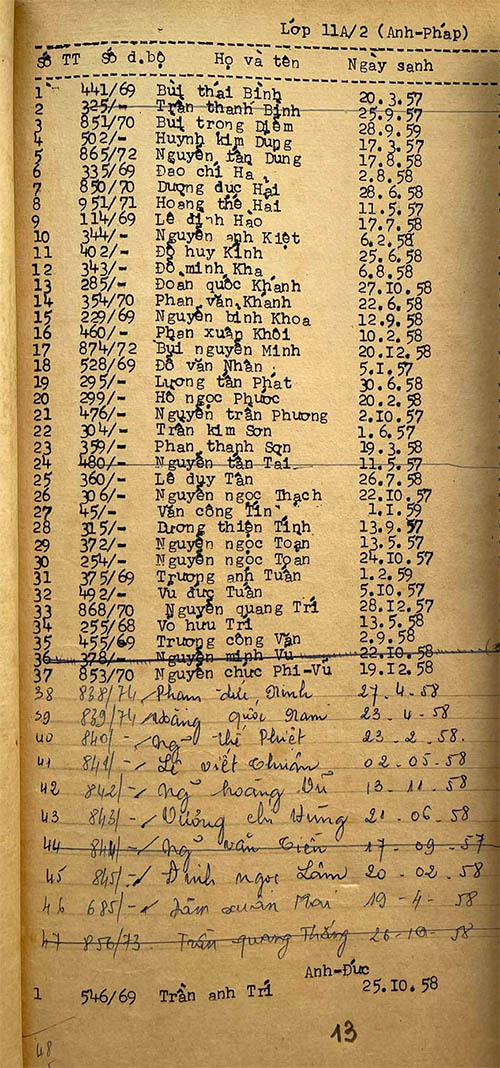 Lớp 11A/2 (Anh-Pháp)
Số TT Số d.bộ Họ và tên Ngày sanh
1 441/69 Bùi thái Bình 20.3.57
2 325/- Trần thanh Bình 25.9.57
3 851/70 Bùi trọng Diêm 28.9.59
4 502/- Huỳnh kim Dung 17.3.57
5 865/72 Nguyễn tấn Dung 17.8.58
6 335/69 Đào chí Hà 2.8.58
7 850/70 Dương đức Hải 28.6.58
8 951/71 Hoàng thế Hải 11.5.57
9 114/69 Lê đình Hào 17.7.58
10 344/- Nguyễn anh Kiệt 6.2.58
11 402/- Đỗ huy Kính 25.6.58
12 343/- Đỗ minh Kha 6.8.58
13 285/- Đoàn quốc Khánh 27.10.58
14 354/70 Phan văn Khánh 22.6.58
15 229/69 Nguyễn bỉnh Khoa 12.9.58
16 460/- Phan xuân Khôi 10.2.58
17 874/72 Bùi nguyên Minh 20.12.58
18 528/69 Đỗ văn Nhân 5.1.57
19 295/- Lương tấn Phát 30.6.58
20 299/- Hồ ngọc Phước 20.2.58
21 476/- Nguyễn trần Phương 2.10.57
22 304/- Trần kim Sơn 1.6.57
23 359/- Phan thanh Sơn 19.3.58
24 480/- Nguyễn tấn Tài 11.5.57
25 360/- Lê duy Tân 26.7.58
26 306/- Nguyễn ngọc Thạch 22.10.57
27 45/- Văn công Tín 1.1.59
28 315/- Dương thiện Tính 13.9.57
29 372/- Nguyễn ngọc Toàn 13.5.57
30 254/- Nguyễn ngọc Toàn 24.10.57
31 375/69 Trương anh Tuấn 1.2.59
32 492/- Vũ đức Tuấn 5.10.57
33 868/70 Nguyễn quang Trí 28.12.57
34 255/68 Võ hữu Trí 13.5.58
35 455/69 Trương công Văn 2.9.58
36 378/- Nguyễn minh Vũ 22.10.58
37 853/70 Nguyễn chúc Phi-Vũ 19.12.58
38 838/74 Phạm đức Ninh 27-4-58
39 839/74 Hoàng quốc Nam 23-4-58
40 840/- Ng~ thế Phiệt 23-2-58.
41 841/- Lê viết Thuận 02-05-58
42 842/- Ng~ hoàng Vũ 13-11-58
43 843/- Vương chí Hùng 21-06-58
44 844/- Ng~ văn Tiến 17-09-57
45 845/- Đinh ngọc Lâm 20-02-58
46 685/- Lâm xuân Mai 19-4-58
47 856/73 Trần quang Thắng 26-10-58
Anh-Đức
1 546/69 Trần anh Trí 25.10.58
13
48